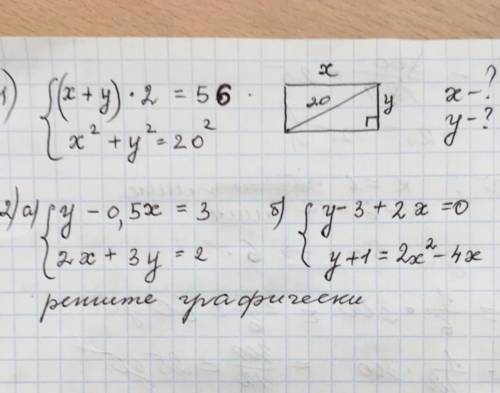 1) (x + y) · 2 = 56
x² + y² = 20²
x
20
y
x - ?
y - ?
2) а) y - 0,5x = 3
2x + 3y = 2
б) y - 3 + 2x = 0
y + 1 = 2x² - 4x
решите графически